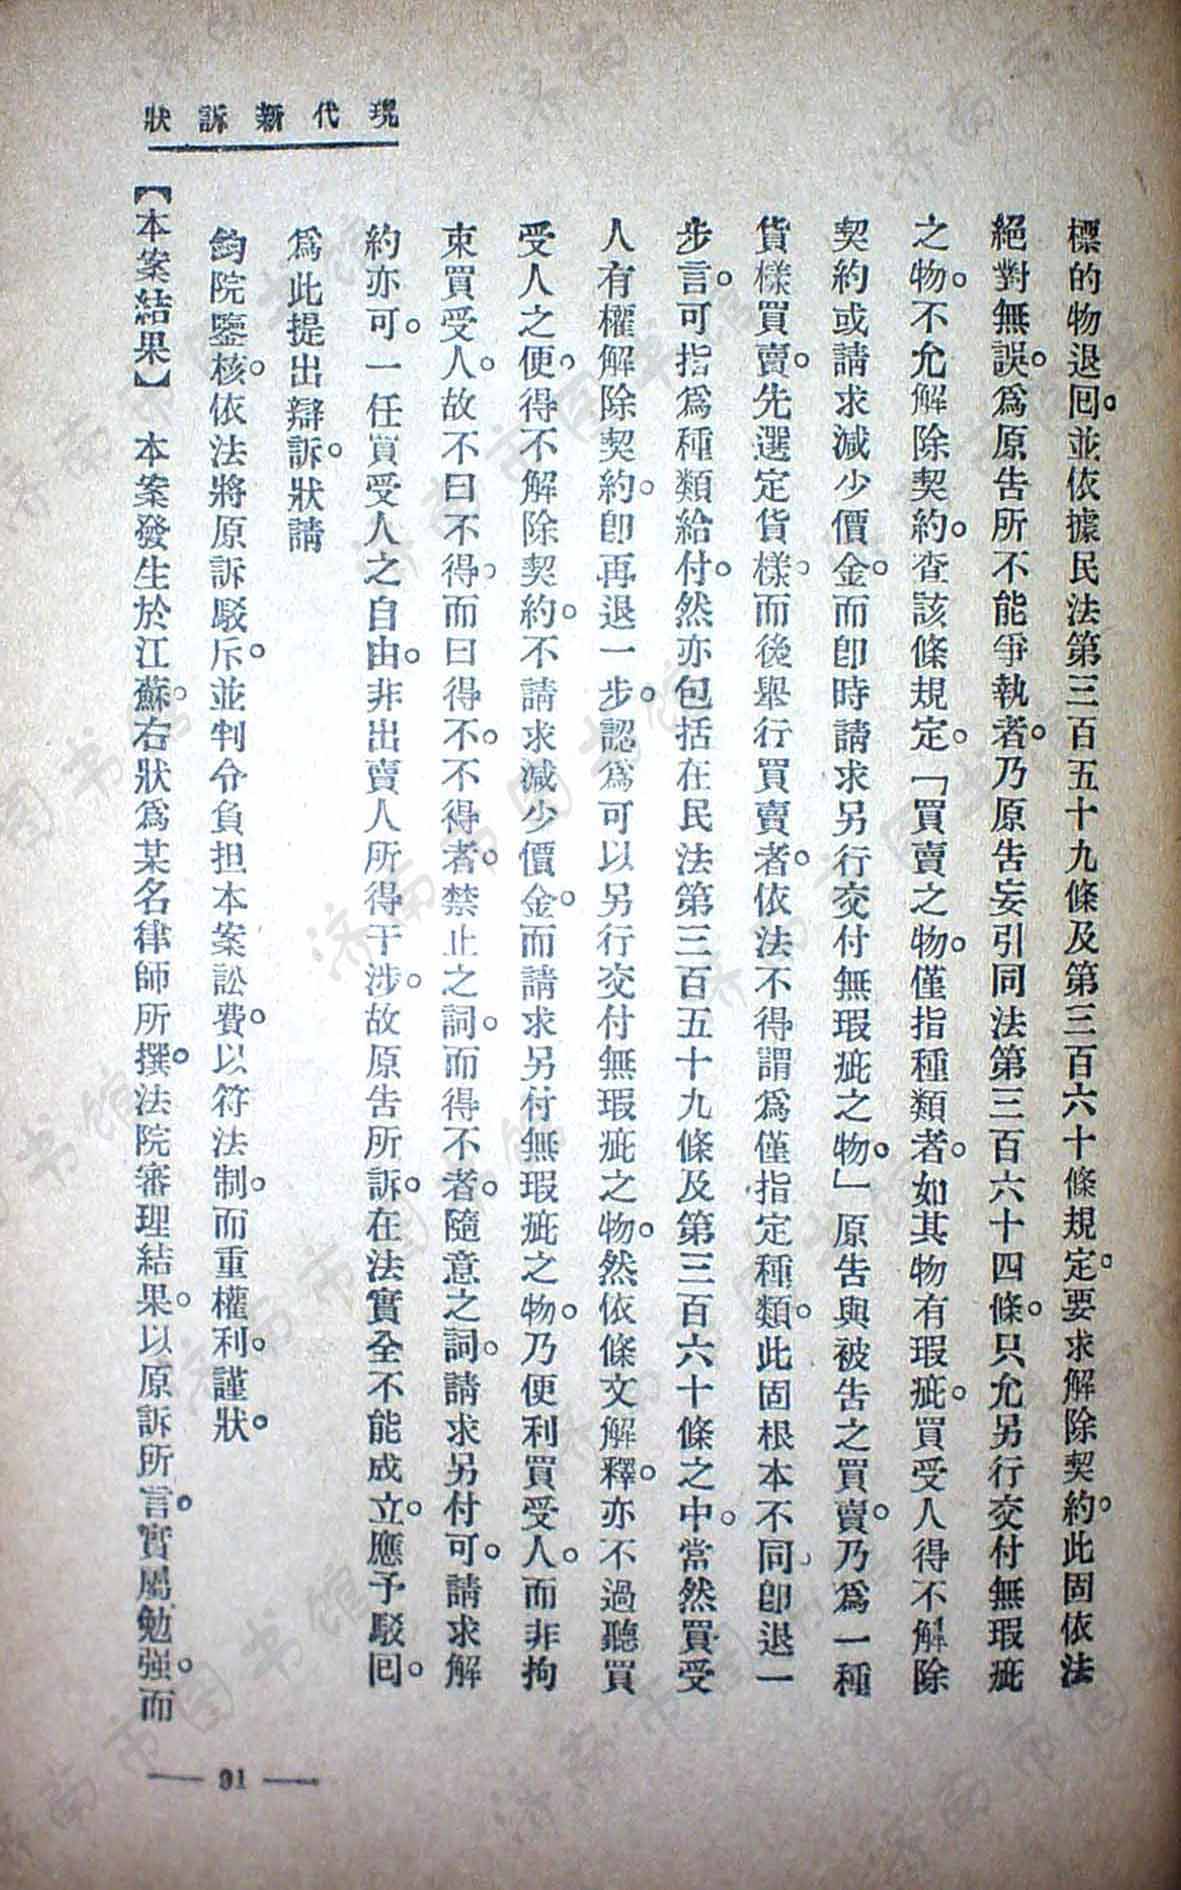 現代新訴狀
標的物退囘。並依據民法第三百五十九條及第三百六十條規定。要求解除契約。此固依法
絕對無誤。爲原告所不能爭執者。乃原告妄引同法第三百六十四條。只允另行交付無瑕疵
之物。不允解除契約。查該條規定。「買賣之物。僅指種類者。如其物有瑕疵。買受人得不解除
契約或請求減少價金。而卽時請求另行交付無瑕疵之物。」原告與被告之買賣。乃爲一種
貨樣買賣。先選定貨樣。而後舉行買賣者。依法不得謂爲僅指定種類。此固根本不同。卽退一
步言。可指爲種類給付。然亦包括在民法第三百五十九條及第三百六十條之中。當然買受
人有權解除契約。卽再退一步。認爲可以另行交付無瑕疵之物。然依條文解釋。亦不過聽買
受人之便。得不解除契約。不請求減少價金。而請求另付無瑕疵之物。乃便利買受人。而非拘
束買受人。故不曰不得。而曰得不。不得者。禁止之詞。而得不者。隨意之詞。請求另付可。請求解
約亦可。一任買受人之自由。非出賣人所得干涉。故原告所訴。在法實全不能成立。應予駁囘。
爲此提出辯訴。狀請
鈞院鑒核。依法將原訴駁斥。並判令負担本案訟費。以符法制。而重權利。謹狀。
【本案結果】本案發生於江蘇。右狀爲某名律師所撰。法院審理結果。以原訴所言。實屬勉强。而
— 91 —
济南市图书馆